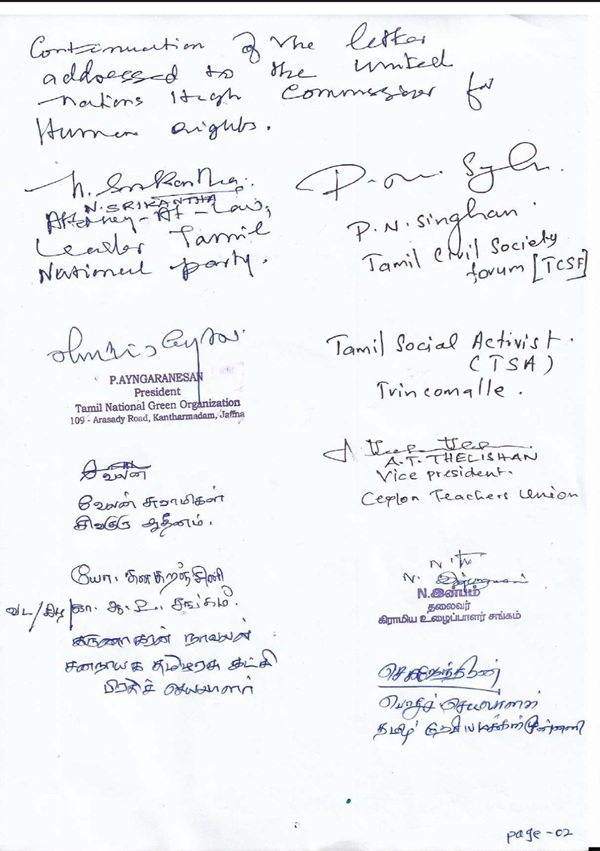 Continuation of the letter
addressed to the United
Nations High Commissioner for
Human rights.
N. SRIKANTHA
Attorney-At-Law,
Leader Tamil
National party.
P.N. Singhan.
Tamil Civil Society
forum [TCSF]
P.AYNGARANESAN
President
Tamil National Green Organization
109 - Arasady Road, Kantharmadam, Jaffna
Tamil Social Activist.
(TSA)
Trincomalle.
வேலன் சுவாமிகள்
சிவகுரு ஆதீனம்.
A.T. THELISHAN
Vice president.
Ceylon Teachers Union
யோ. கனகரஞ்சினி
வட/கிழ காண. ஆ. உ. சங்கம்.
N.இன்பம்
தலைவர்
கிராமிய உழைப்பாளர் சங்கம்
கருணாகரன் நாவலன்
சனநாயக தமிழரசு கட்சி
பிரதிச் செயலாளர்
பொதுச் செயலாளர்
தமிழ்
page-02